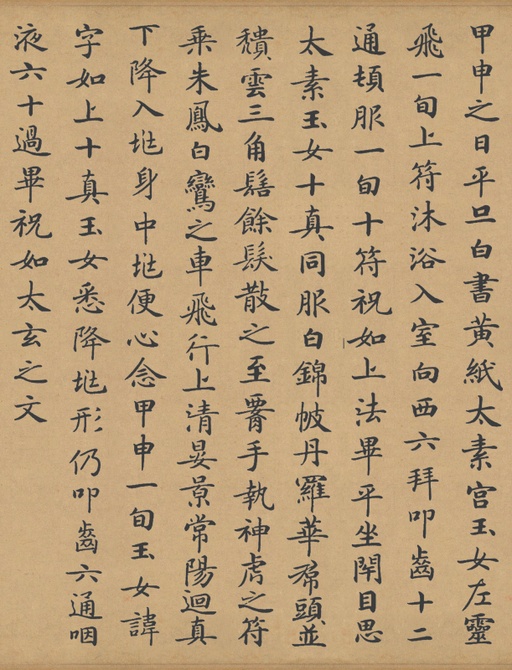 甲申之日平旦白書黃紙太素宮玉女左靈
飛一旬上符沐浴入室向西六拜叩齒十二
通頓服一旬十符祝如上法畢平坐閇目思
太素玉女十真同服白錦帔丹羅華帬頭並
穨雲三角髻餘髮散之至署手執神虎之符
乘朱鳳白鸞之車飛行上清晏景常陽迴真
下降入𡉄身中𡉄便心念甲申一旬玉女諱
字如上十真玉女悉降𡉄形仍叩齒六通咽
液六十過畢祝如太玄之文